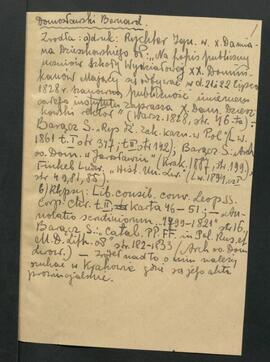 Domosławski Bernard.
1
Źródła: a) druk: Rychter Ign. w. X. Damia-
na Dzieszkowskiego OP: „Na popis publiczny
uczniów Szkoły Wydziałowej XX. Domini-
kanów mający się odbywać w d. 21 22 lipca
1828 r. szanowną publiczność imieniem
całego instytutu zaprasza X. Dam. Dziesz-
kowski rektor" (Warsz. 1828, str. 46 ta)
Barącz S. „Rys dz. zak. kazn. w Pol." (Lw.
1861 t. I str. 317; t. II str. 142), Barącz S. „Arch.
oo. Dom. w Jarosławiu" (Krak. 1887, str. 199)
Finkel Ludw. „Hist. Un. Lw." (Lw. 1894, cz. I
str. 49, 81, 85).
b) Rkpsy: Lib. consil. conv. Leop. SS.
Corp. Chr. t. II karta 46-51; „An-
notatio scendiniorum 1799-1821" str. 16,
Barącz S.: „Catal. PP. FF. in Pol. Rus. et
M. D. Lith. OP" str. 182-1833 (Arch. oo. Dom.
Lwow.) – Zresztą nad to o nim należy
szukać w Krakowie gdzie są jego akta
prowincjalskie.